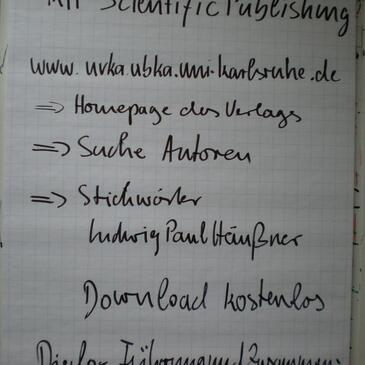 KIT Scientific Publishing
www.uvka.ubka.uni-karlsruhe.de
=> Homepage des Verlags
=> Suche Autoren
=> Stichwörter
Ludwig Paul Häußner
Download kostenlos